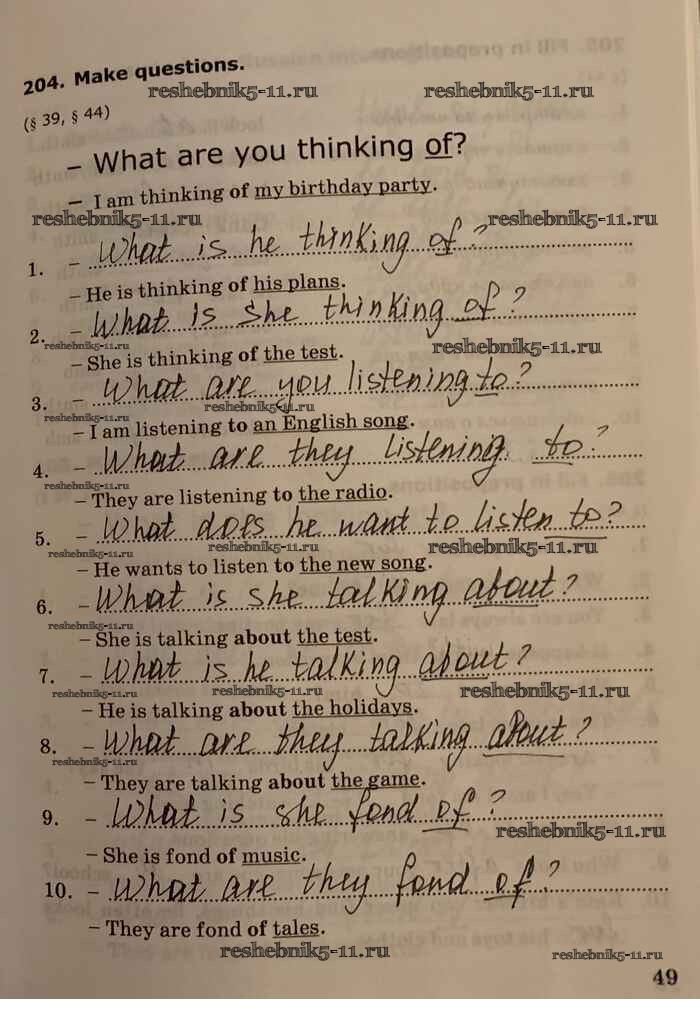 204. Make questions.
reshebnik5-11.ru reshebnik5-11.ru
(§ 39, § 44)
– What are you thinking of?
– I am thinking of my birthday party.
reshebnik5-11.ru reshebnik5-11.ru
1. – What is he thinking of?
– He is thinking of his plans.
2. – What is she thinking of?
reshebnik5-11.ru reshebnik5-11.ru
– She is thinking of the test.
3. – What are you listening to?
reshebnik5-11.ru reshebnik5-11.ru
– I am listening to an English song.
4. – What are they listening to?
reshebnik5-11.ru
– They are listening to the radio.
5. – What does he want to listen to?
reshebnik5-11.ru reshebnik5-11.ru reshebnik5-11.ru
– He wants to listen to the new song.
6. – What is she talking about?
reshebnik5-11.ru
– She is talking about the test.
7. – What is he talking about?
reshebnik5-11.ru reshebnik5-11.ru reshebnik5-11.ru
– He is talking about the holidays.
8. – What are they talking about?
reshebnik5-11.ru
– They are talking about the game.
9. – What is she fond of?
reshebnik5-11.ru
– She is fond of music.
10. – What are they fond of?
– They are fond of tales.
reshebnik5-11.ru reshebnik5-11.ru
49